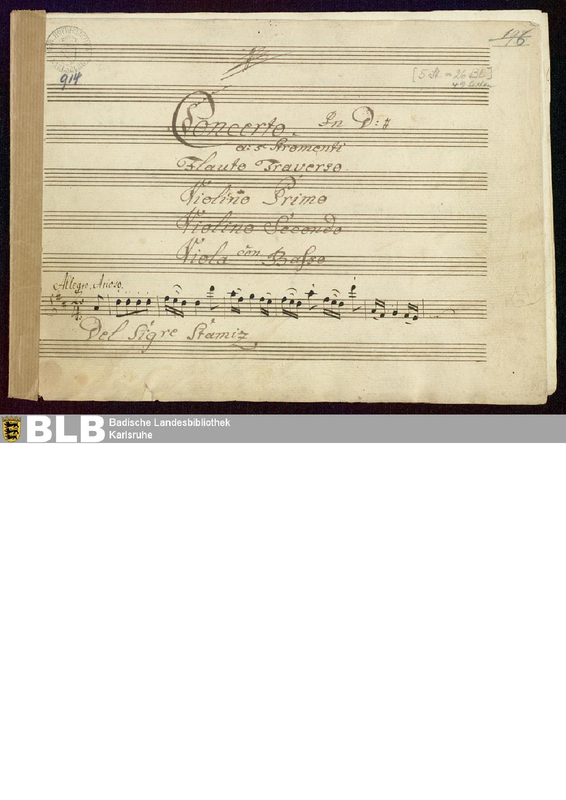 914
Concerto. In D:#
a: 5 Stromenti
Flauto Traverso
Violino Primo
Violino Secondo
Viola con Basso
Allegro Arioso
Del Sigre Stamiz
BLB Badische Landesbibliothek
Karlsruhe